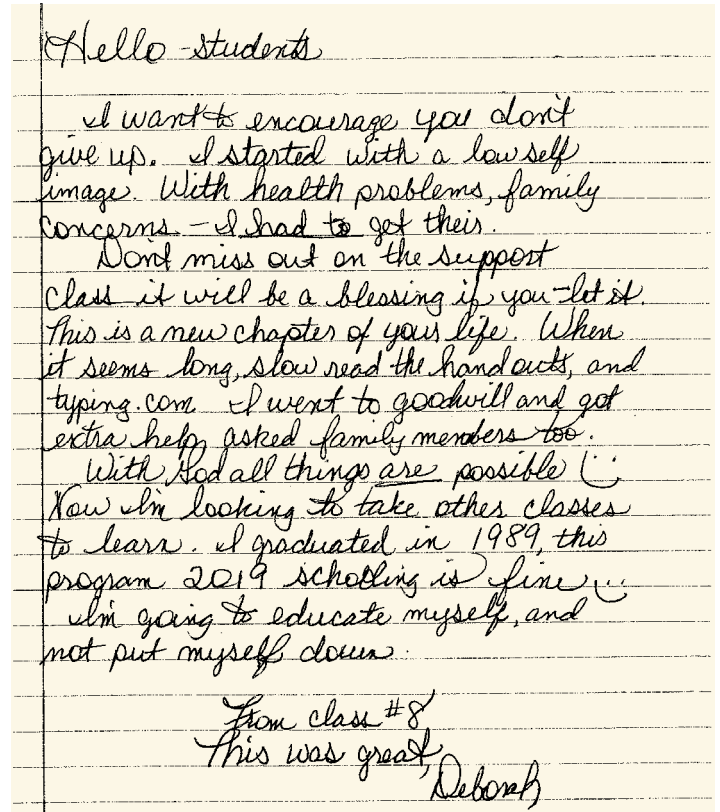 Hello students
I want to encourage you don't
give up. I started with a low self
image. With health problems, family
concerns - I had to get their.
Don't miss out on the support
class it will be a blessing if you let it.
This is a new chapter of your life. When
it seems long, slow read the handouts, and
typing.com I went to goodwill and got
extra help, asked family members too.
With God all things are possible (:
Now I'm looking to take other classes
to learn. I graduated in 1989, this
program 2019 schooling is fine (:
I'm going to educate myself, and
not put myself down.
From class #8
This was great,
Deborah